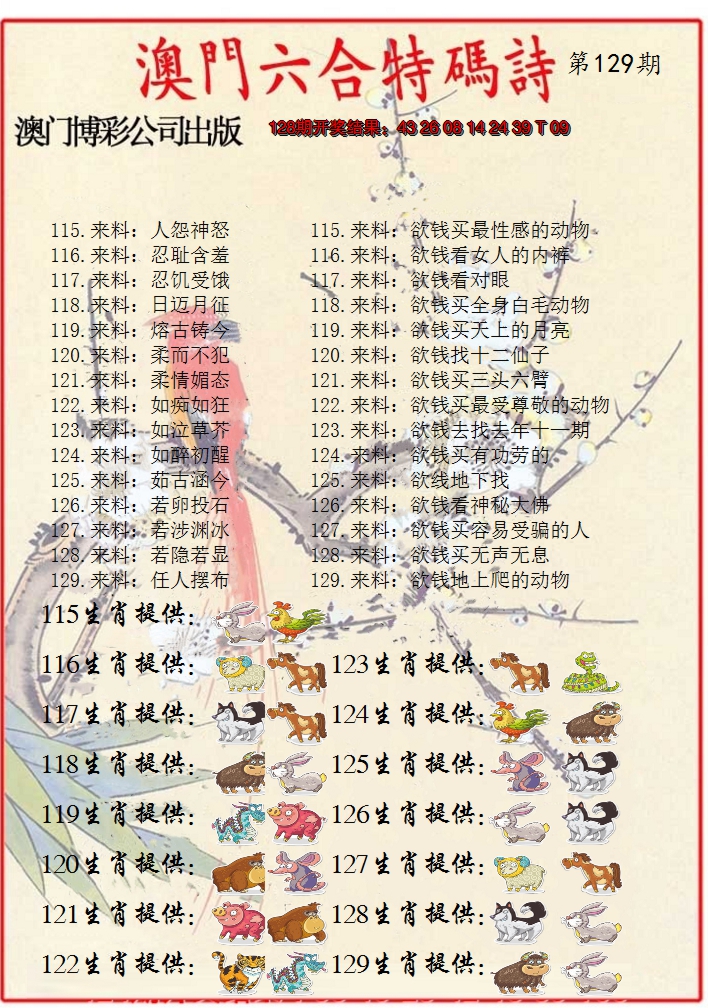 澳門六合特碼詩 第129期
澳门博彩公司出版 128期开奖结果：43 26 08 14 24 39 T 09
115.来料：人怨神怒 115.来料：欲钱买最性感的动物
116.来料：忍耻含羞 116.来料：欲钱看女人的内裤
117.来料：忍饥受饿 117.来料：欲钱看对眼
118.来料：日迈月征 118.来料：欲钱买全身白毛动物
119.来料：熔古铸今 119.来料：欲钱买天上的月亮
120.来料：柔而不犯 120.来料：欲钱找十二仙子
121.来料：柔情媚态 121.来料：欲钱买三头六臂
122.来料：如痴如狂 122.来料：欲钱买最受尊敬的动物
123.来料：如泣草芥 123.来料：欲钱去找去年十一期
124.来料：如醉初醒 124.来料：欲钱买有功劳的
125.来料：茹古涵今 125.来料：欲线地下找
126.来料：若卵投石 126.来料：欲钱看神秘大佛
127.来料：若涉渊冰 127.来料：欲钱买容易受骗的人
128.来料：若隐若显 128.来料：欲钱买无声无息
129.来料：任人摆布 129.来料：欲钱地上爬的动物
115生肖提供：
116生肖提供： 123生肖提供：
117生肖提供： 124生肖提供：
118生肖提供： 125生肖提供：
119生肖提供： 126生肖提供：
120生肖提供： 127生肖提供：
121生肖提供： 128生肖提供：
122生肖提供： 129生肖提供：